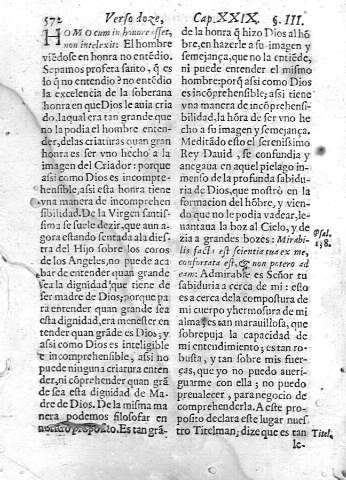 572 Verso doze, Cap. XXIX. §. III.
HOMO cum in honore esset,
non intelexit: El hombre
viẽdose en honra no entẽdio.
Sepamos profeta santo, q̃ es
lo q̃ no entẽdio? no entẽdio
la excelencia de la soberana
honra en que Dios le auia cria
do, la qual era tan grande que
no la podia el hombre enten-
der, de las criaturas quan gran
honra es ser vno hecho a la
imagen del Criador: porque
assi como Dios es incompre-
hensible, assi esta honra tiene
vna manera de incomprehen
sibilidad. De la Virgen santis-
sima se suele dezir, que aun a-
gora estando sentada a la dies-
tra del Hijo sobre los coros
de los Angeles, no puede aca
bar de entender quan grande
sea la dignidad que tiene de
ser madre de Dios; porque pa
ra entender quan grande sea
esta dignidad, era menester en
tender quan grãde es Dios, y
assi como Dios es inteligible
e incomprehensible, assi no
puede ninguna criatura enten
der, ni cõprehender quan grã
de sea esta dignidad de Ma-
dre de Dios. De la misma ma
nera podemos filosofar en
nuestro proposito. Es tan grã-
de la honra q̃ hizo Dios al hõ
bre, en hazerle a su imagen y
semejança, que no la entiẽde,
ni puede entender el mismo
hombre: porq̃ assi como Dios
es incõprehensible, assi tiene
vna manera de incõprehensi-
bilidad, la hõra de ser vno he
cho a su imagen y semejança.
Meditãdo esto el serenissimo
Rey Dauid, se confundia y
anegaua en aquel pielago in-
menso de la profunda sabidu-
ria de Dios, que mostrò en la
formacion del hõbre, y vien-
do que no le podia vadear, le-
uantaua la boz al Cielo, y de
zia a grandes bozes: Mirabi-
lis facta est scientia tua ex me,
confortata est, & non potero ad
eam: Admirable es Señor tu
sabiduria a cerca de mi: esto
es a cerca dela compostura de
mi cuerpo y hermosura de mi
alma es tan marauillosa, que
sobrepuja la capacidad de
mi entendimiento; es tan ro-
busta, y tan sobre mis fuer-
ças, que yo no puedo aueri-
guarme con ella; no puedo
preualecer, para negocio de
comprehenderla. A este pro-
posito declara este lugar nues
tro Titelman; dize que es tan
le-
Psal.
138.
Titel.